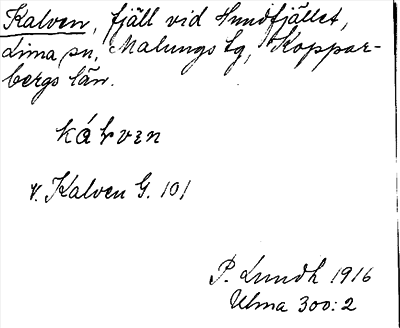 Kalven, fjäll vid Hundfjället,
Lima sn, Malungs tg, Koppar-
bergs län.
kálven
v. Kalven G. 101
P. Lundh 1916
Ulma 300:2